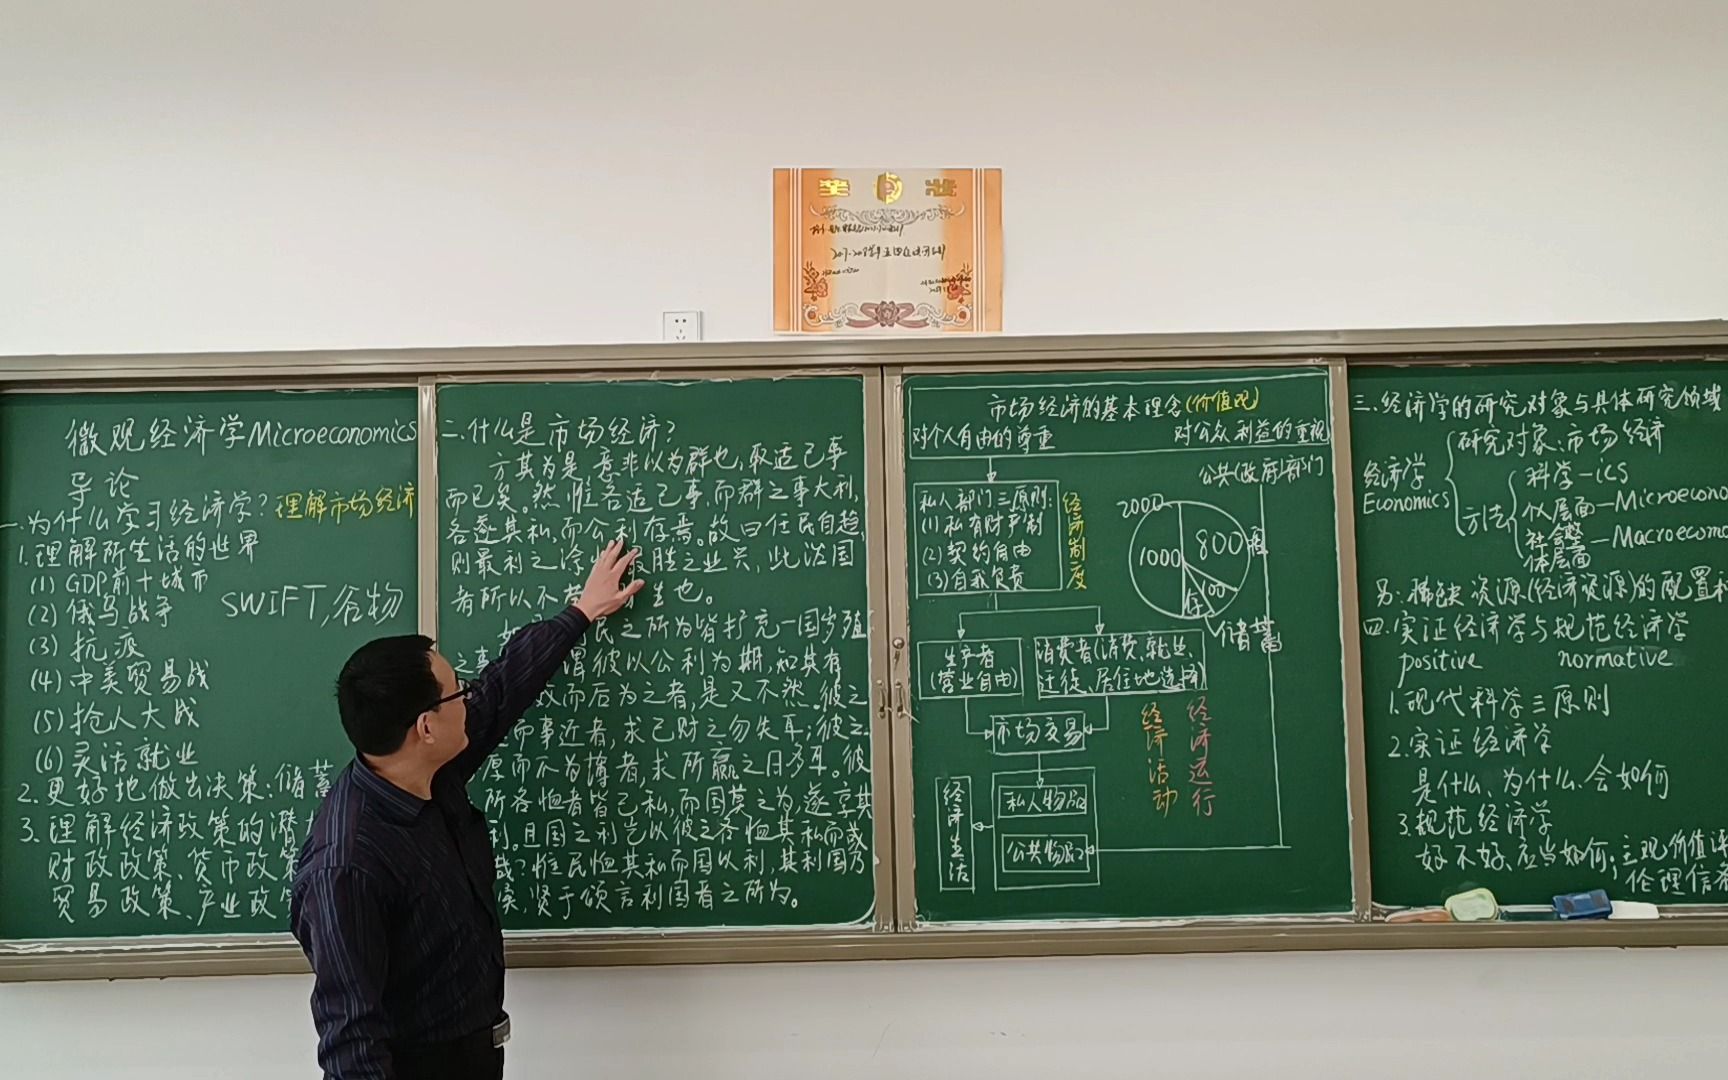 奖状
微观经济学Microeconomics
导论
一.为什么学习经济学?理解市场经济
1.理解所生活的世界
(1) GDP前十城市
(2) 俄乌战争
SWIFT,谷物
(3) 抗疫
(4) 中美贸易战
(5) 抢人大战
(6) 灵活就业
2.更好地做出决策:储蓄
3.理解经济政策的潜
财政政策、货币政策
贸易政策、产业政
二.什么是市场经济?
方其为是,意非以为群也,取适己事
而已矣。然惟各适己事,而群之事大利,
各遂其私,而公利存焉。故曰任民自趋,
则最利之涂 最胜之业兴,此法国
者所以不 生也。
民之所为皆扩充一国岁殖
之事 谓彼以公利为期,知其有
效而后为之者,是又不然。彼之
而事近者,求己财之勿失耳;彼之
厚而不为博者,求所赢之日多耳。彼
所各恤者皆己私,而国莫之为遂享其
利。且国之利岂以彼之各恤其私而或
哉?惟民恤其私而国以利,其利国乃
,贤于颂言利国者之所为。
市场经济的基本理念(价值观)
对个人自由的尊重
对公众利益的重视
公共(政府)部门
私人部门三原则:
(1)私有财产制
(2)契约自由
(3)自我负责
经济制度
2000
1000
800
100
储蓄
生产者
(营业自由)
消费者(消费、就业、
迁徙、居住地选择)
市场交易
经济活动
经济运行
经济生活
私人物品
公共物品
三.经济学的研究对象与具体研究领域
经济学
Economics
研究对象:市场经济
方法
科学-ics
个体层面-Microecono
社会整
体层面-Macroecono
另:稀缺资源(经济资源)的配置和
四.实证经济学与规范经济学
positive normative
1.现代科学三原则
2.实证经济学
是什么、为什么、会如何
3.规范经济学
好不好、应当如何;主观价值评
伦理信